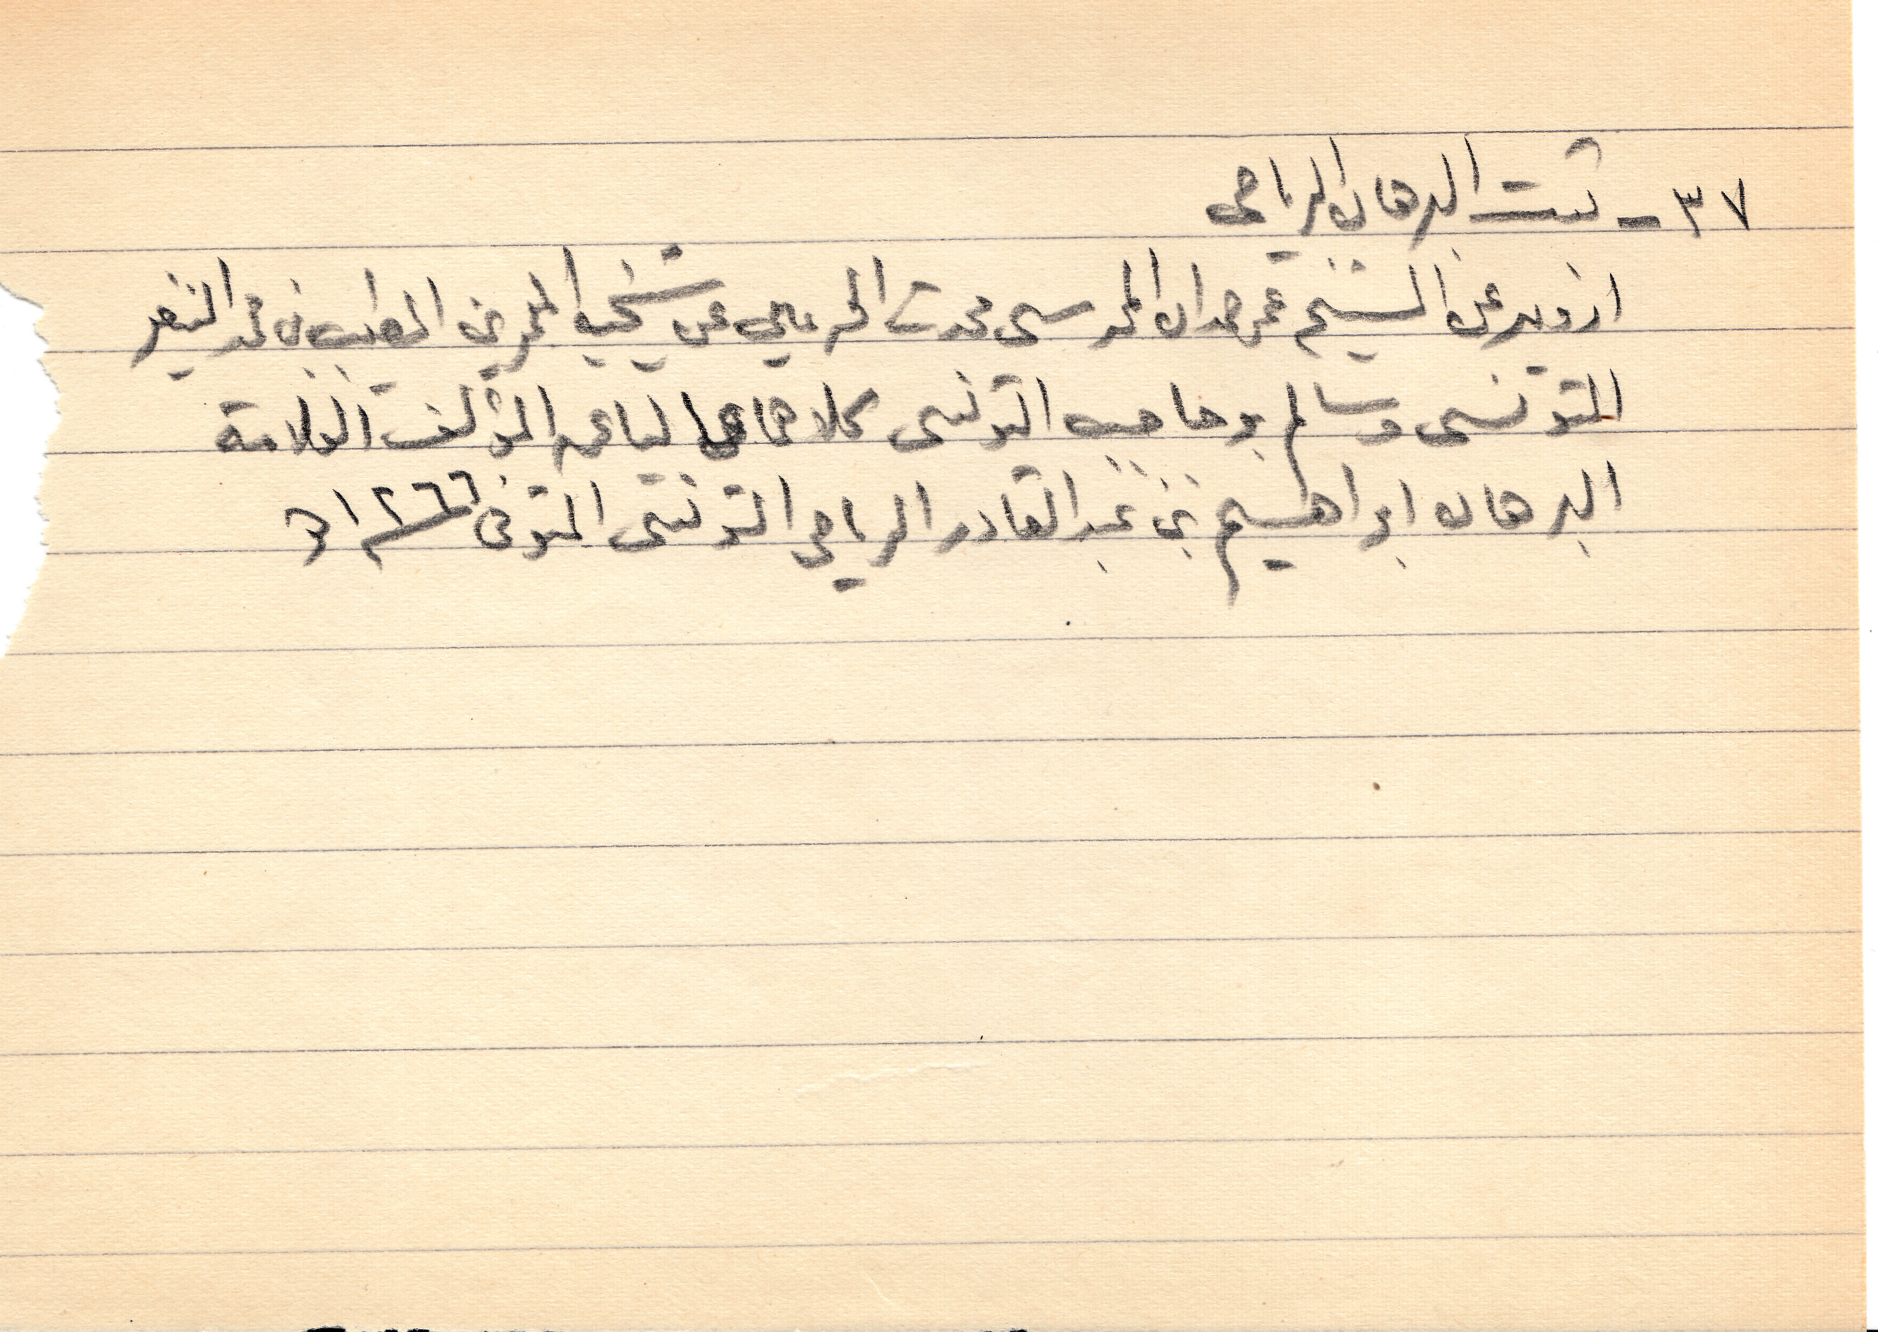 ٣٧ - ثبت البرهان الرياحي
ارويه عن الشيخ عمر حمدان المحرسي محدث الحرمين عن شيخيه المعمرين الطيب بن محمد النيفر
التونسي وسالم بوحاجب التونسي كلاهما عن المؤلف العلامة
البرهان ابراهيم بن عبد القادر الرياحي التونسي المتوفى ١٢٦٦ هـ